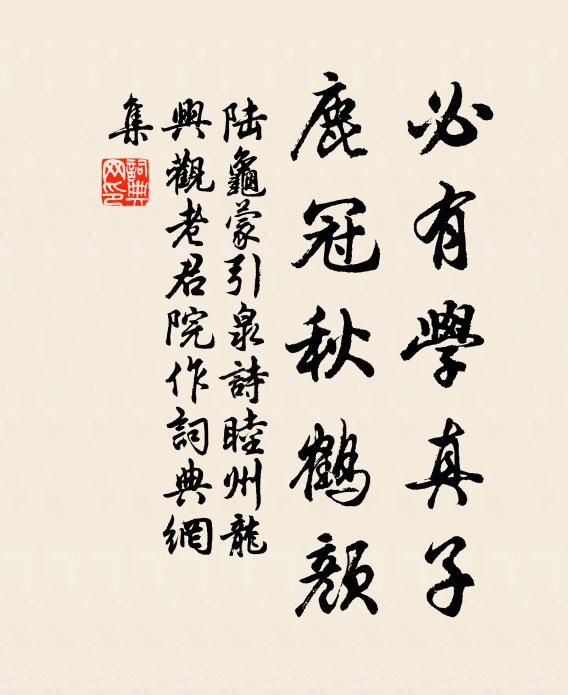 必有學真子
鹿冠秋鶴顏
陸龜蒙引泉詩睦州龍
興觀老君院作詞典網
集
詞典
网印